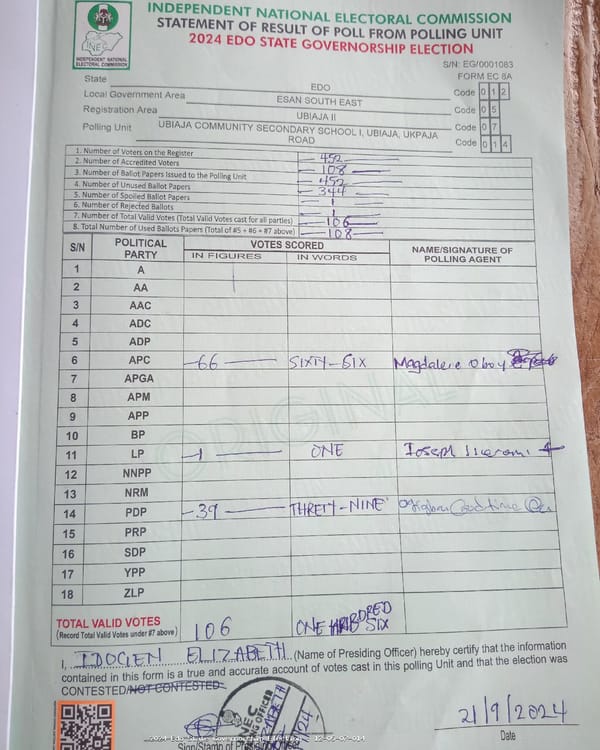 INDEPENDENT NATIONAL ELECTORAL COMMISSION
STATEMENT OF RESULT OF POLL FROM POLLING UNIT
2024 EDO STATE GOVERNORSHIP ELECTION
INEC
INDEPENDENT NATIONAL
ELECTORAL COMMISSION
S/N: EG/0001083
FORM EC 8A
State EDO
Local Government Area ESAN SOUTH EAST Code 0 1 2
Registration Area UBIAJA II Code 0 5
Polling Unit UBIAJA COMMUNITY SECONDARY SCHOOL I, UBIAJA, UKPAJA Code 0 7
ROAD Code 0 1 4
1. Number of Voters on the Register 452
2. Number of Accredited Voters 108
3. Number of Ballot Papers Issued to the Polling Unit 452
4. Number of Unused Ballot Papers 344
5. Number of Spoiled Ballot Papers 1
6. Number of Rejected Ballots 1
7. Number of Total Valid Votes (Total Valid Votes cast for all parties) 106
8. Total Number of Used Ballots Papers (Total of #5 + #6 + #7 above) 108
S/N POLITICAL PARTY VOTES SCORED NAME/SIGNATURE OF POLLING AGENT
IN FIGURES IN WORDS
1 A
2 AA
3 AAC
4 ADC
5 ADP
6 APC 66 SIXTY-SIX Magdalene
7 APGA
8 APM
9 APP
10 BP
11 LP 1 ONE Joseph
12 NNPP
13 NRM
14 PDP 39 THRETY-NINE
15 PRP
16 SDP
17 YPP
18 ZLP
ORIGINAL
TOTAL VALID VOTES
(Record Total Valid Votes under #7 above) 106 ONE HUNDRED SIX
I, IDOGIEN ELIZABETH (Name of Presiding Officer) hereby certify that the information
contained in this form is a true and accurate account of votes cast in this polling Unit and that the election was
CONTESTED/NOT CONTESTED.
INEC
21/9/2024
Sign/Stamp of Presiding Officer
Date